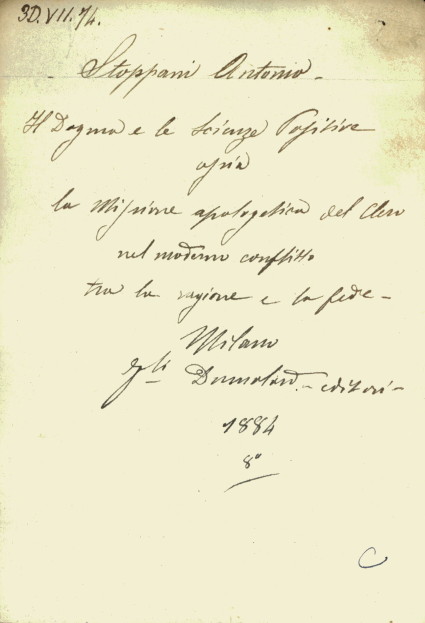 3D.VII.74.
Stoppani Antonio -
Il Dogma e le Scienze Positive
ossia
la Missione apologetica del Clero
nel moderno conflitto
tra la ragione e la fede -
Milano
f.lli Dumolard - editori -
1884
8°
C